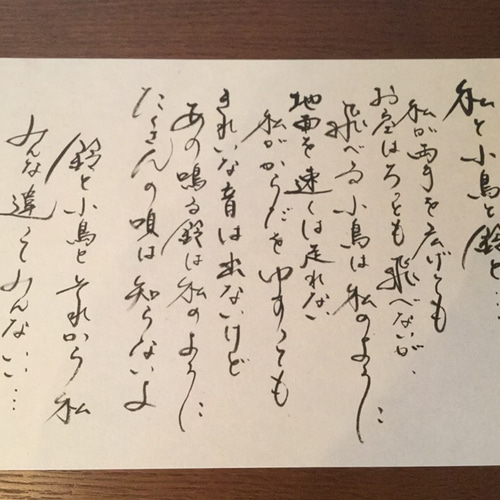 私と小鳥と鈴と…
私が両手を広げても
お空はちっとも飛べないが、
飛べる小鳥は私のように
地面を速くは走れない
私がからだをゆすっても
きれいな音は出ないけど
あの鳴る鈴は私のように
たくさんの唄は知らないよ
鈴と小鳥とそれから私
みんな違ってみんないい…